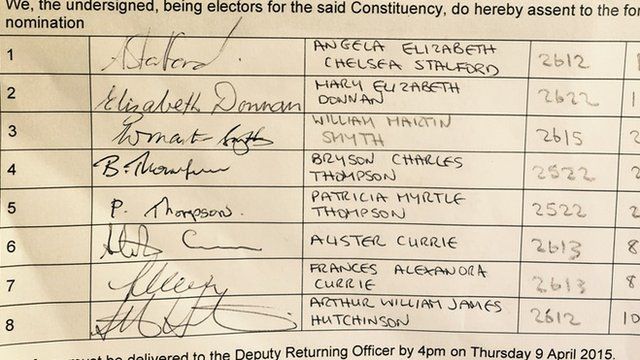 We, the undersigned, being electors for the said Constituency, do hereby assent to the fo
nomination
1 AStalford ANGELA ELIZABETH CHELSEA STALFORD 2612 1
2 Elizabeth Donnan MARY ELIZABETH DONNAN 2622 1
3 WILLIAM MARTIN SMYTH 2615 2
4 B. Thompson BRYSON CHARLES THOMPSON 2522 2
5 P. Thompson. PATRICIA MYRTLE THOMPSON 2522 2
6 ALISTER CURRIE 2613 8
7 FRANCES ALEXANDRA CURRIE 2613 8
8 ARTHUR WILLIAM JAMES HUTCHINSON 2612 10
must be delivered to the Deputy Returning Officer by 4pm on Thursday 9 April 2015.